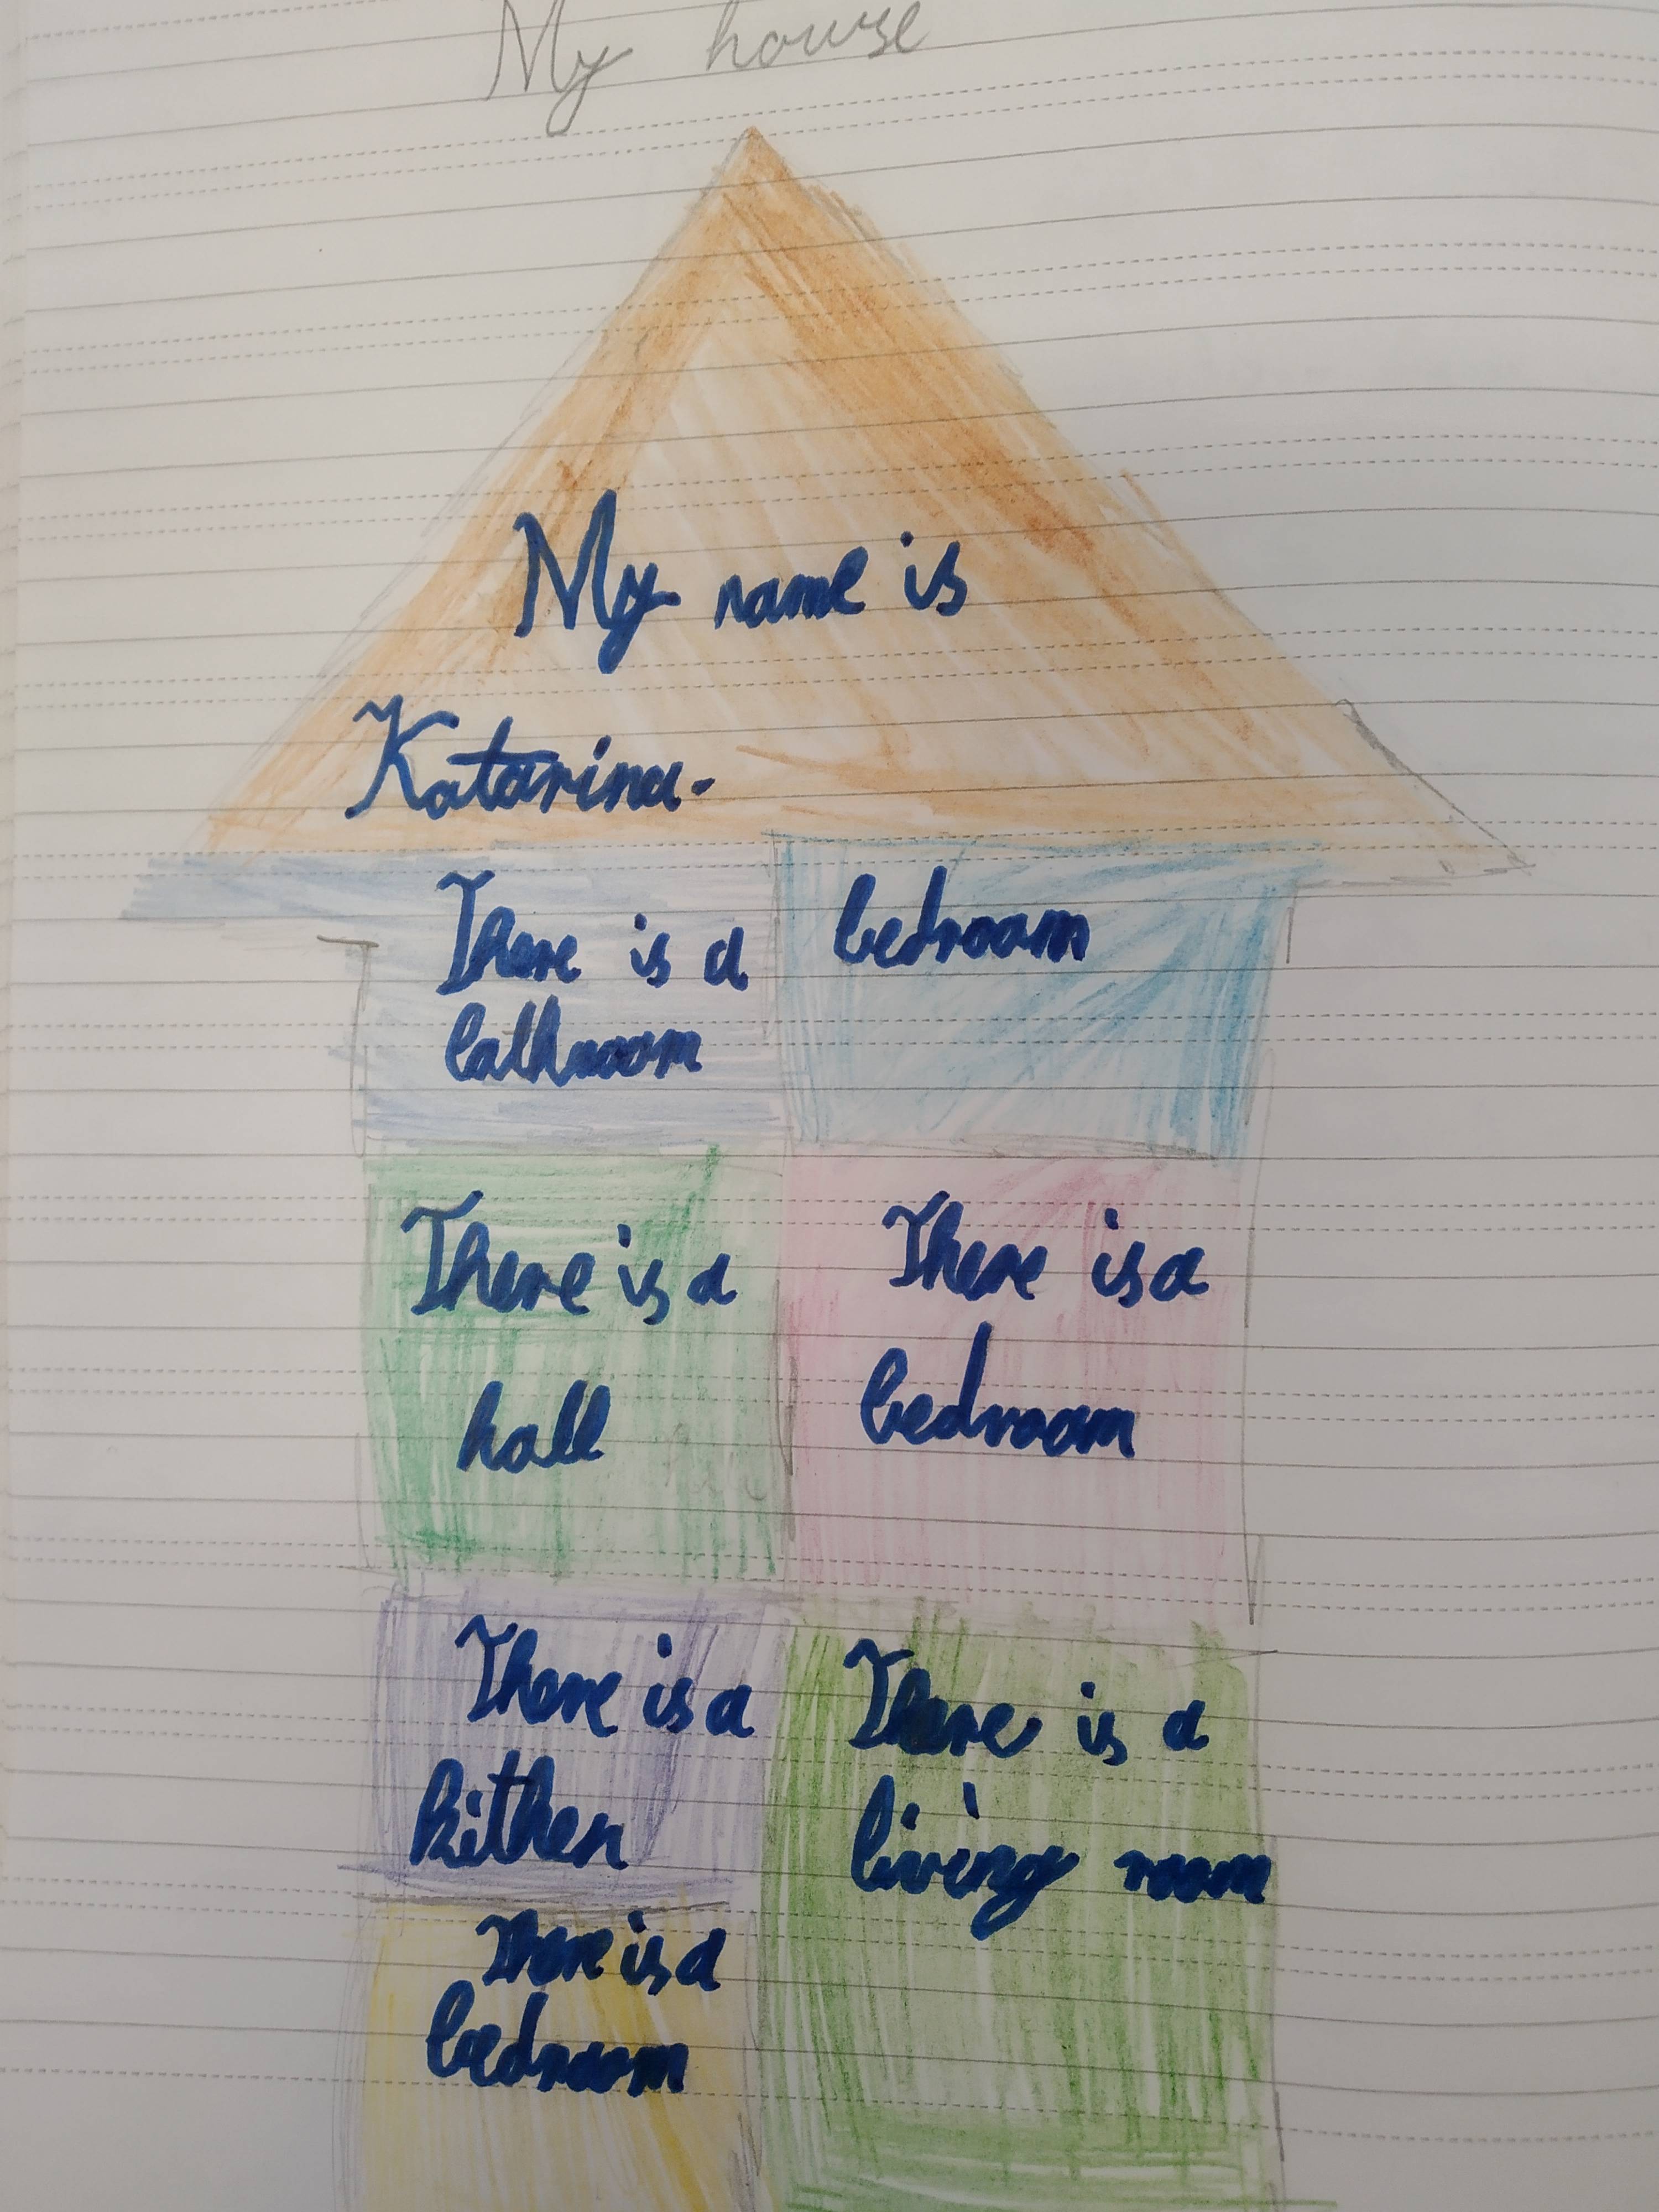 My house
My name is
Katarina.
There is a
bathroom
bedroom
There is a
hall
There is a
bedroom
There is a
kithen
There is a
living room
There is a
bedroom